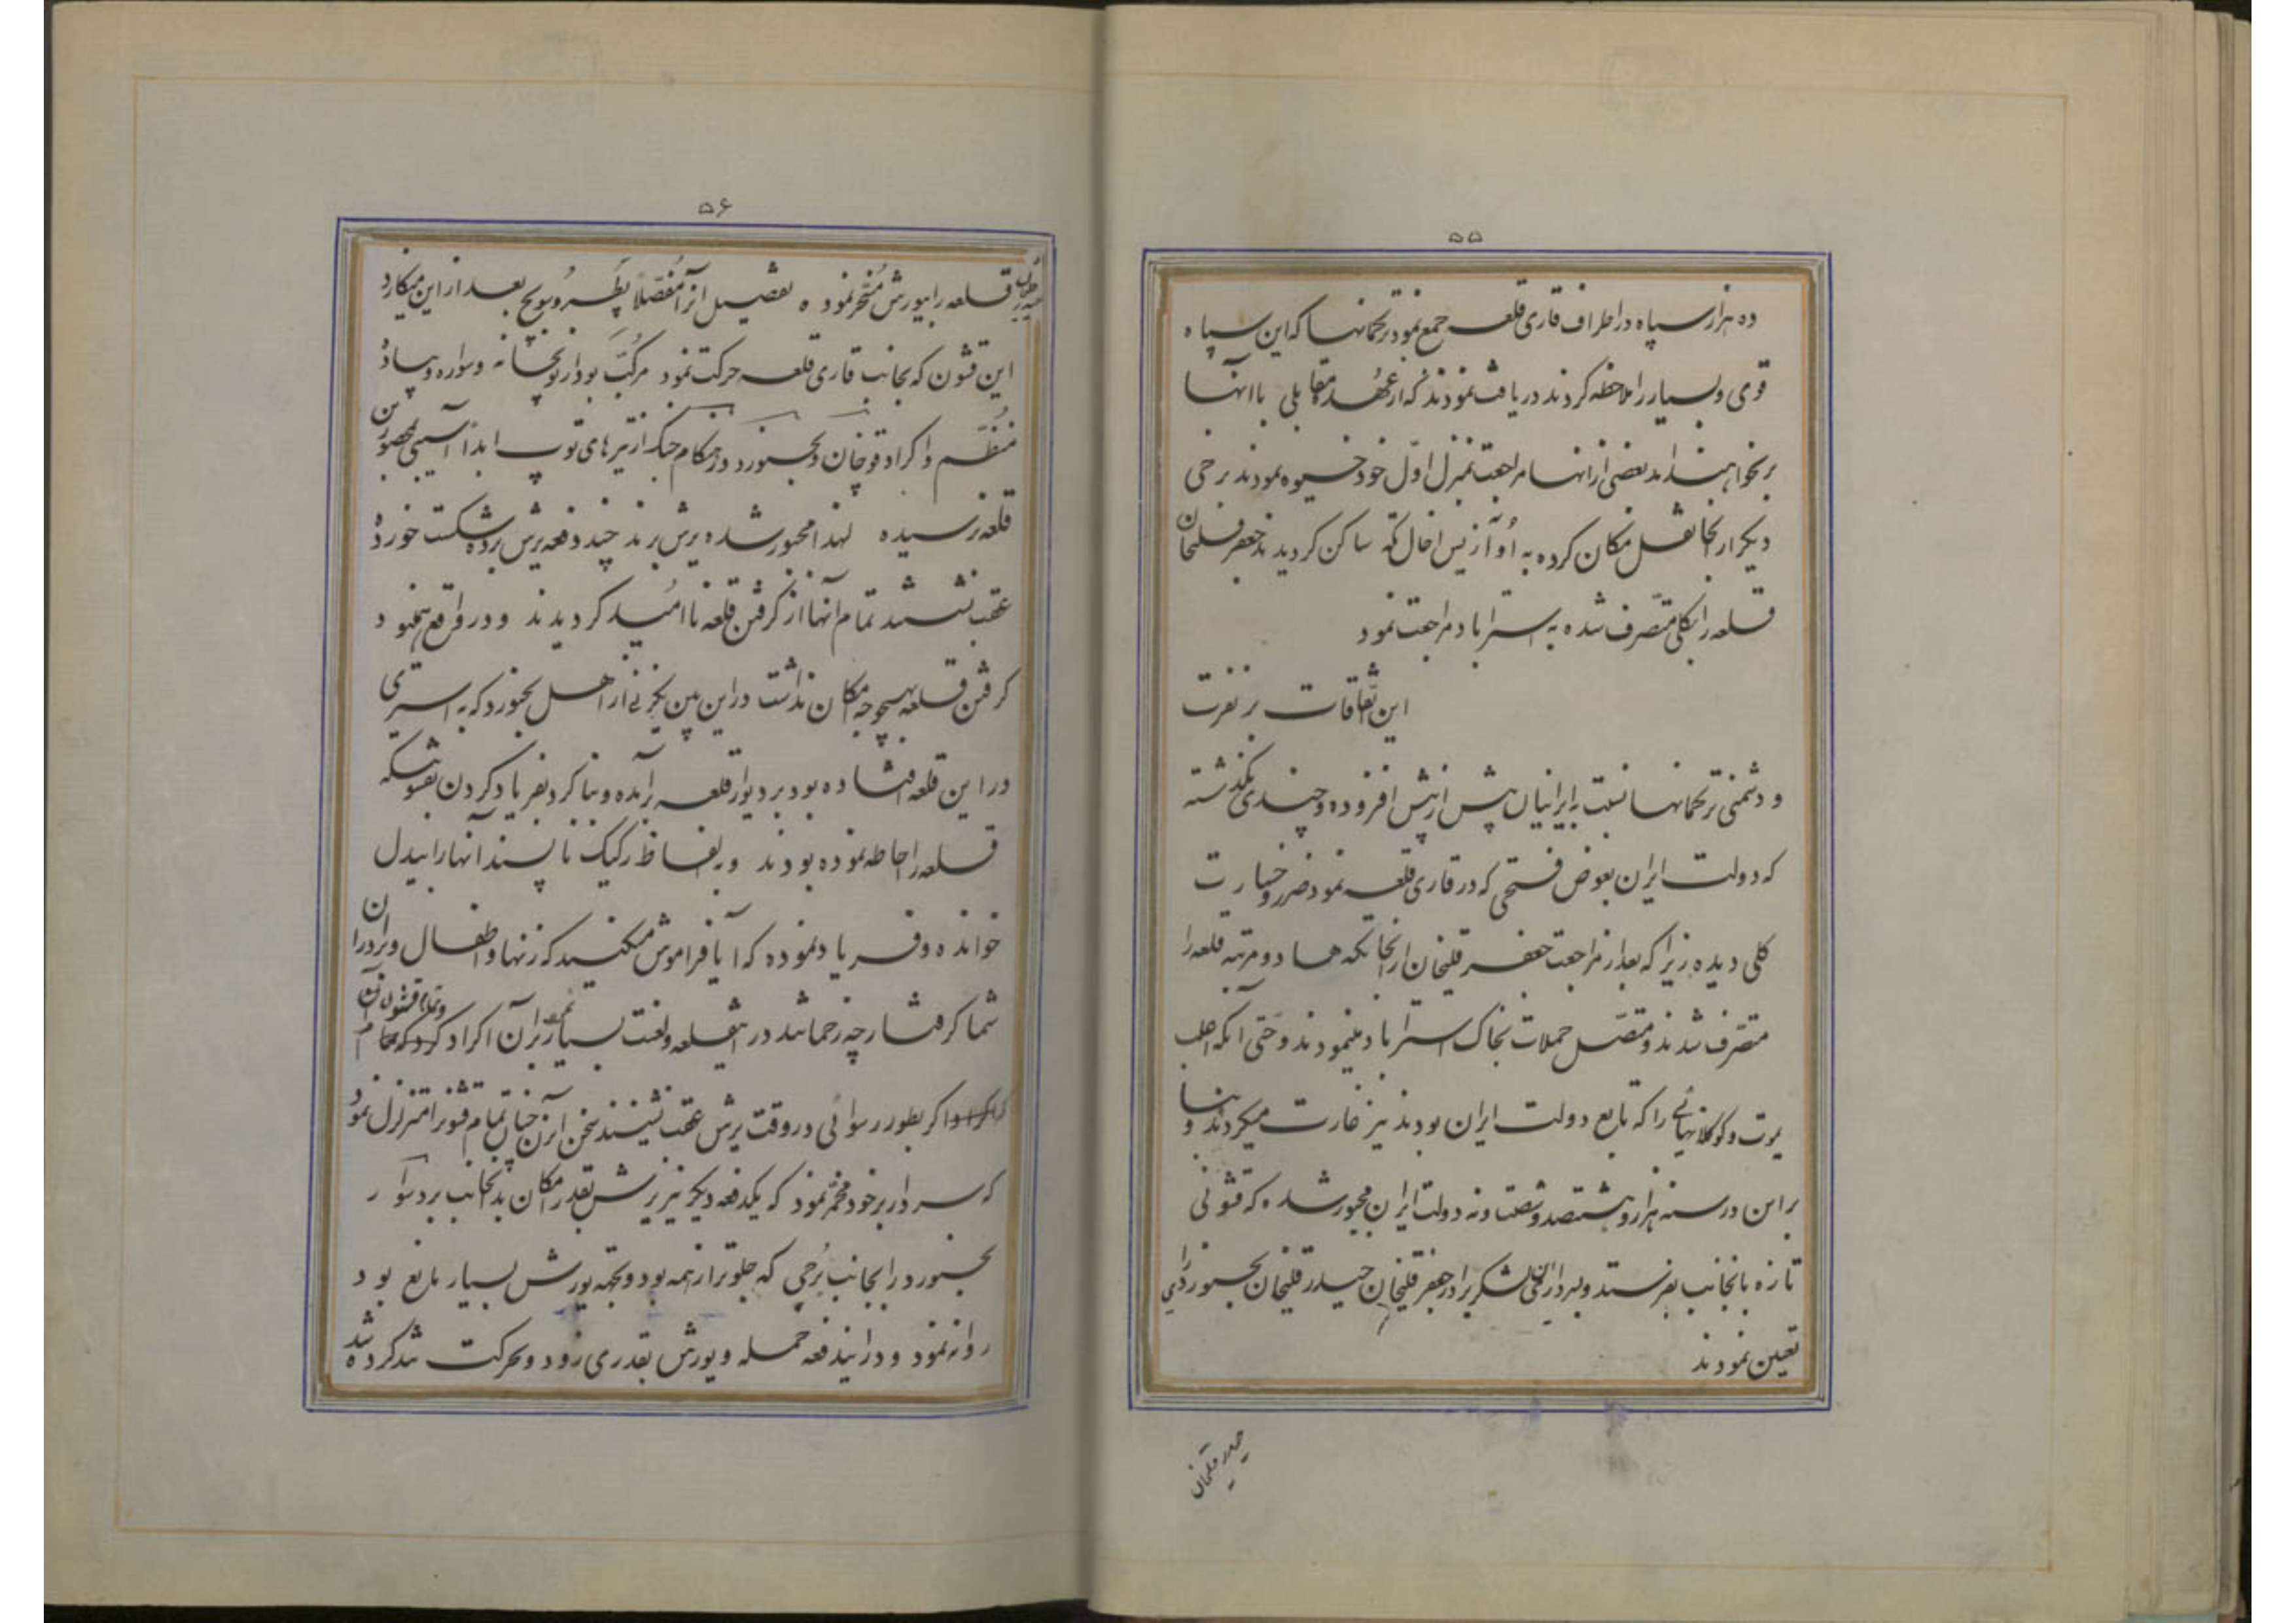 ۵۵
ده هزار سپاه در اطراف قاری قلعه جمع نمود ترکمانها که این سپاه
قوی و بسیار را ملاحظه کردند دریافت نمودند که از عهده مقابلی با آنها
بر نخواهند امد بعضی از انها مراجعت بمنزل اول خود خیوه نمودند برخی
دیگر از انجا نقل مکان کرده به ساکن گردیدند جعفر قلیخان
قلعه را بکلی متصرف شده به استراباد مراجعت نمود
این اتفاقات بر نفرت
و دشمنی ترکمانها نسبت به ایرانیان بیش از پیش افزوده و چندی نگذشته
که دولت ایران بعوض فتحی که در قاری قلعه نمود ضرر و خسارت
کلی دیده زیرا که بعد از مراجعت جعفر قلیخان از انجا تکه ها دو مرتبه قلعه را
متصرف شدند و متصل حملات بخاک استراباد مینمودند و حتی آنکه اغلب
یموت و کوکلانهائی را که تابع دولت ایران بودند نیز غارت میکردند و بنا
براین در سنه هزار و هشتصد و شصت و نه دولت ایران مجبور شده که قشونی
تازه بانجانب بفرستد و بسرداری لشکر برادر جعفر قلیخان حیدر قلیخان بجنوردی را
تعیین نمودند
حیدر قلیخان
۵۶
حیدر قلیخان قلعه را بیورش مسخر نموده تفصیل انرا مفصلا بعد از این مینگارد
این قشون که بجانب قاری قلعه حرکت نمود مرکب بود از توپخانه و سواره و پیاده
منظم و اکراد قوچان و بجنورد در هنگام جنگ از تیرهای توپ ابدا آسیبی بمحصورین
قلعه نرسیده لهذا مجبور شده یرش برند چند دفعه یرش برده شکست خورده
عقب نشستند تمام انها از گرفتن قلعه نا امید گردیدند و در واقع هم
گرفتن قلعه بهیچوجه امکان نداشت در این بین یکزنی از اهل بجنورد که به اسیری
در این قلعه افتاده بود بر دیوار قلعه برآمده و بنا کرد بفریاد کردن بقشونیکه
قلعه را احاطه نموده بودند و بالفاظ رکیک نا پسند آنها را بیدل
خوانده و فریاد نموده که آیا فراموش میکنید که زنها و اطفال و برادران
شما گرفتار چه زحماتند در اینقلعه و لعنت بسیار بر آن اکراد
اگر بطور رسوائی در وقت یرش عقب نشینند سخن این زن چنان تمام قشونرا متزلزل نمود
که سردار بر خود مخمر نمود که یکدفعه دیگر نیز یرش بقدر امکان بدانجانب برد سوار
بجنورد را بجانب برجی که جلوتر از همه بود و بجهة یورش بسیار مانع بود
روانه نمود و در ایندفعه حمله و یورش بقدری زود و بحرکت تند کرده شد